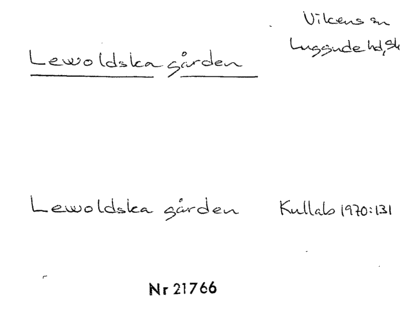 Vikens sn
Luggude hd, Sk
Lewoldska gården
Lewoldska gården Kullab 1970:131
Nr 21766